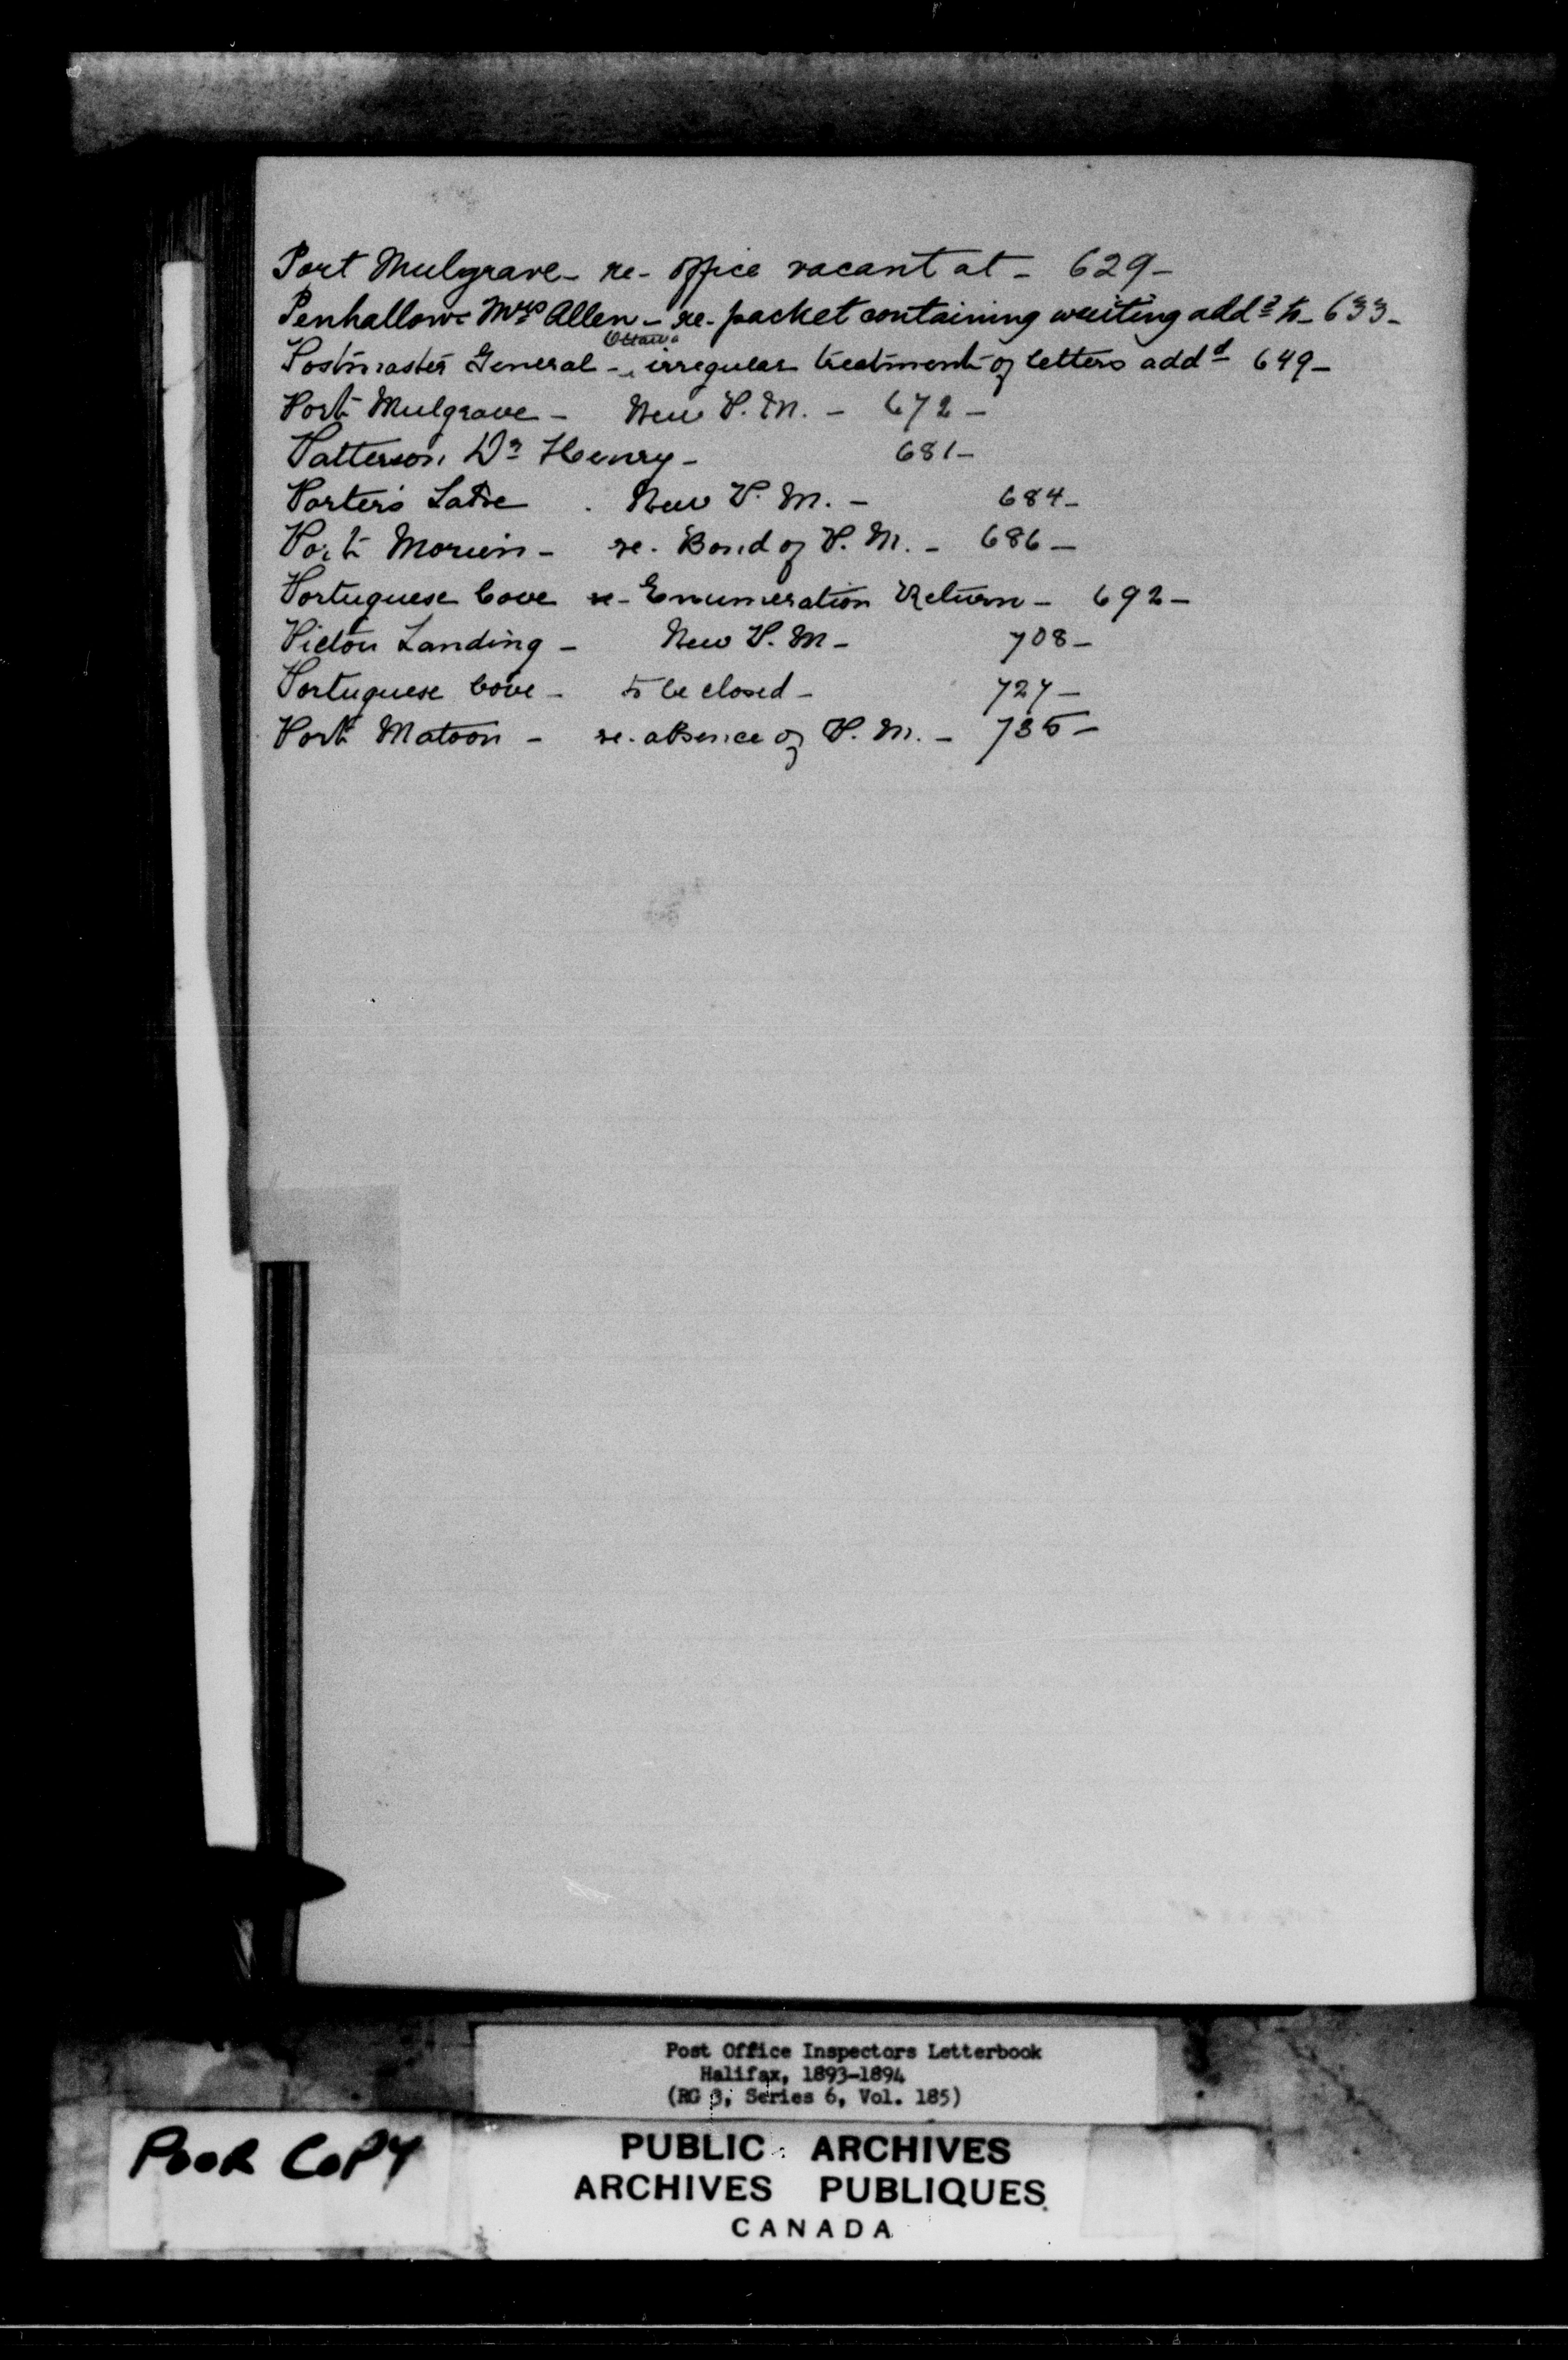 Port Mulgrave - re - Office vacant at - 629 -
Penhallow - Mrs Allen - re - packet containing writing addd to - 633 -
Postmaster General - Ottawa irregular treatment of letters addd 649 -
Port Mulgrave - New P. M. - 672 -
Patterson, Dr Henry - 681 -
Porter's Lake New P. M. - 684 -
Port Morien - re. Bond of P. M. - 686 -
Portuguese Cove re - Enumeration Return - 692 -
Pictou Landing - New P. M - 708 -
Portuguese Cove - to be closed - 727 -
Port Matoon - re. absence of P. M. - 735 -
Post Office Inspectors Letterbook
Halifax, 1893-1894
(RG 3, Series 6, Vol. 185)
POOR COPY
PUBLIC ARCHIVES
ARCHIVES PUBLIQUES
CANADA